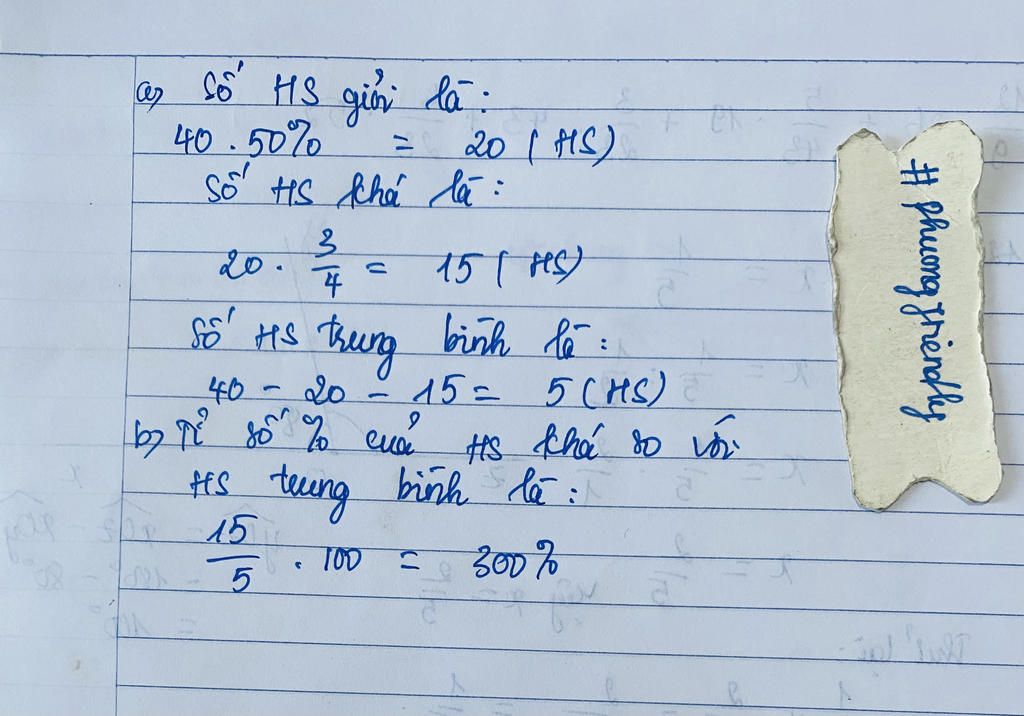 a) Số HS giỏi là:
40 . 50% = 20 (HS)
Số HS khá là:
20 . 3/4 = 15 (HS)
Số HS trung bình là:
40 - 20 - 15 = 5 (HS)
b) Tỉ số % của HS khá so với
HS trung bình là:
15/5 . 100 = 300%
#phuongfriendly